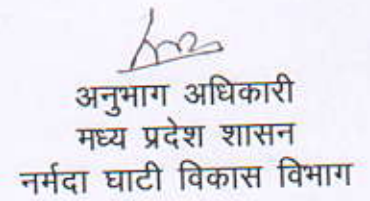 अनुभाग अधिकारी
मध्य प्रदेश शासन
नर्मदा घाटी विकास विभाग